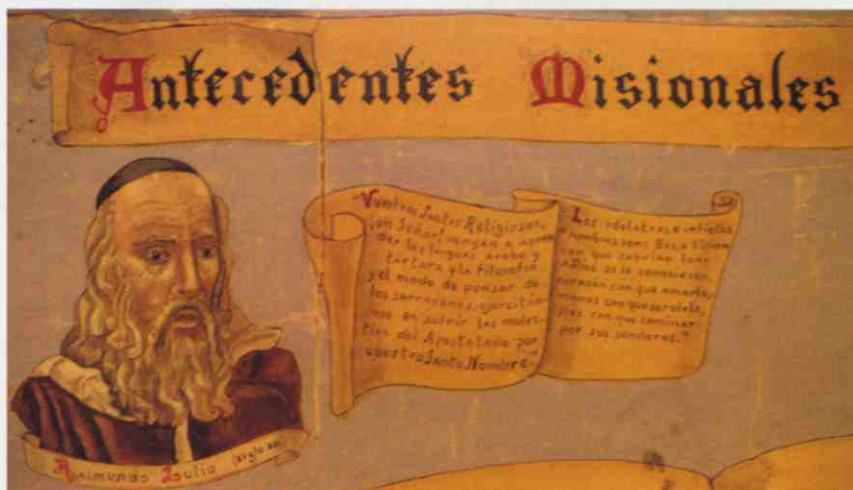 Antecedentes Misionales
"Vuntem Santos Religiosos,
¡oh Señor! vengan a apren
der las lenguas arabe y
tartara y la filosofia
y el modo de pensar de
los sarracenos, ejercitan
ose en sufrir las moles
tias del Apostolado por
vuestro Santo Nombre."
Los idolatras e infieles
hombres son: Boca tienen
con que sabrian loar
a Dios si lo conociesen,
corazón con que amarle,
manos con que servirle,
pies con que caminar
por sus senderos."
Raimundo Lulio (siglo XIII)